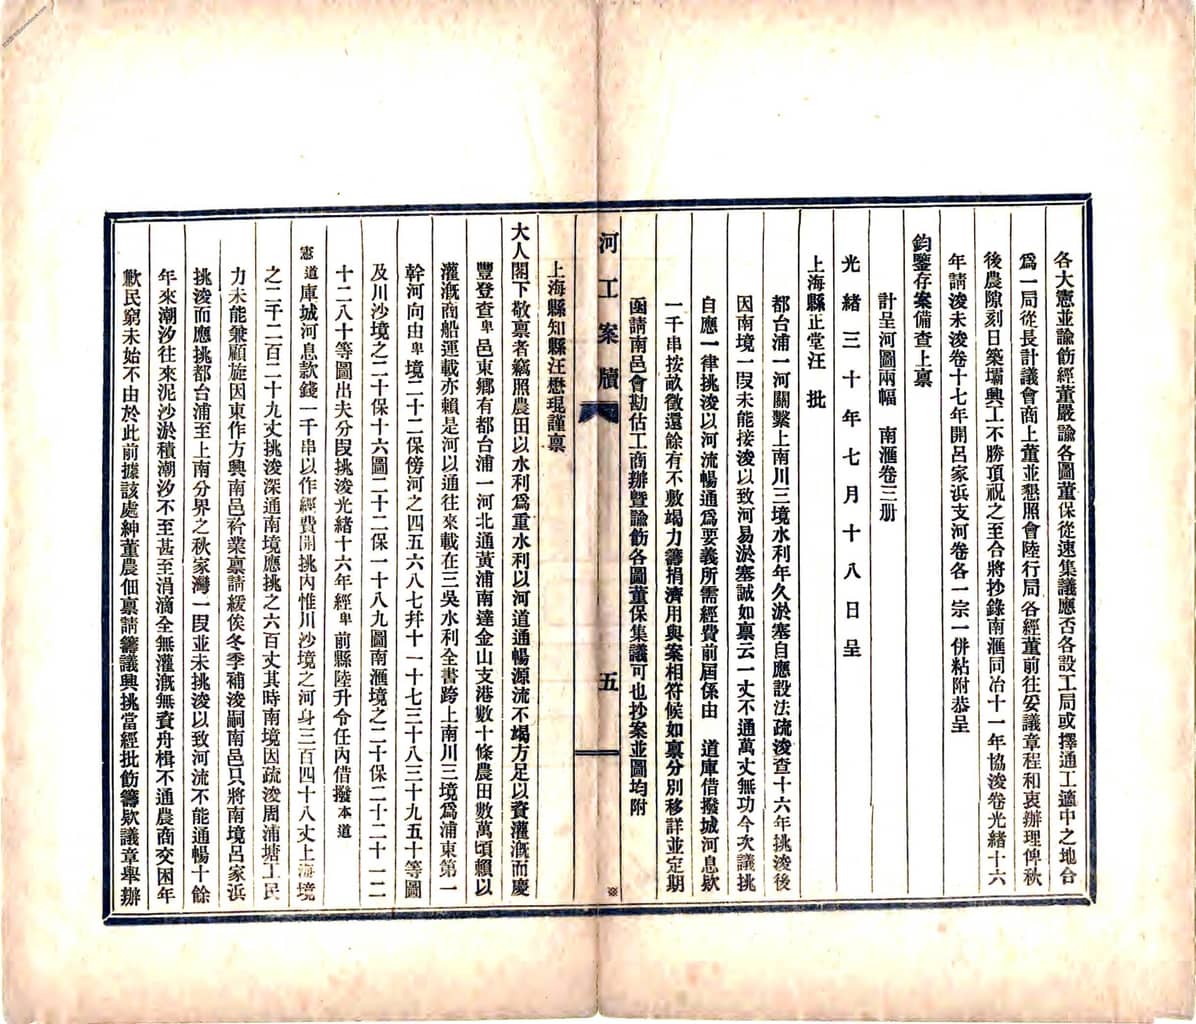 各大憲並諭飭經董嚴諭各圖董保從速集議應否各設工局或擇通工適中之地合
爲一局從長計議會商上董並懇照會陸行局各經董前往妥議章程和衷辦理俾秋
後農隙刻日築壩興工不勝頂祝之至合將抄錄南滙同治十一年協浚卷光緒十六
年請浚未浚卷十七年開呂家浜支河卷各一宗一併粘附恭呈
鈞鑒存案備查上禀
計呈河圖兩幅　南滙卷三册
光緒三十年七月十八日呈
上海縣正堂汪　批
都台浦一河關繫上南川三境水利年久淤塞自應設法疏浚查十六年挑浚後
因南境一段未能接浚以致河易淤塞誠如禀云一丈不通萬丈無功今次議挑
自應一律挑浚以河流暢通爲要義所需經費前屆係由　道庫借撥城河息欵
一千串按畝徵還餘有不敷竭力籌捐濟用與案相符候如禀分別移詳並定期
函請南邑會勘估工商辦暨諭飭各圖董保集議可也抄案並圖均附
河工案牘
五
上海縣知縣汪懋琨謹禀
大人閣下敬禀者竊照農田以水利爲重水利以河道通暢源流不竭方足以資灌漑而慶
豐登查卑邑東鄉有都台浦一河北通黃浦南達金山支港數十條農田數萬頃賴以
灌漑商船運載亦賴是河以通往來載在三吳水利全書跨上南川三境爲浦東第一
幹河向由卑境二十二保傍河之四五六八七幷十一十七三十八三十九五十等圖
及川沙境之二十保十六圖二十二保一十八九圖南滙境之二十保二十二十一二
十二八十等圖出夫分段挑浚光緒十六年經卑前縣陸升令任內借撥本道
憲道庫城河息款錢一千串以作經費開挑內惟川沙境之河身三百四十八丈上海境
之二千二百二十九丈挑浚深通南境應挑之六百丈其時南境因疏浚周浦塘工民
力未能兼顧旋因東作方興南邑衿業禀請緩俟冬季補浚嗣南邑只將南境呂家浜
挑浚而應挑都台浦至上南分界之秋家灣一段並未挑浚以致河流不能通暢十餘
年來潮汐往來泥沙淤積潮汐不至甚至涓滴全無灌漑無資舟楫不通農商交困年
歉民窮未始不由於此前據該處紳董農佃禀請籌議興挑當經批飭籌欵議章舉辦